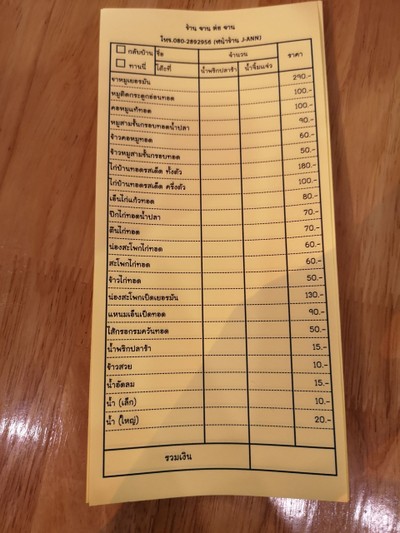 ร้าน จาน ต่อ จาน
โทร.080-2892956 (หน้าร้าน J-ANN)
กลับบ้าน ชื่อ จำนวน ราคา
ทานนี่ โต๊ะที่ น้ำพริกปลาร้า น้ำจิ้มแจ่ว
ขาหมูเยอรมัน 290.-
หมูติดกระดูกอ่อนทอด 100.-
คอหมูแท้ทอด 100.-
หมูสามชั้นกรอบทอดน้ำปลา 90.-
ข้าวคอหมูทอด 60.-
ข้าวหมูสามชั้นกรอบทอด 50.-
ไก่บ้านทอดรสเด็ด ทั้งตัว 180.-
ไก่บ้านทอดรสเด็ด ครึ่งตัว 100.-
เอ็นไก่แก้วทอด 80.-
ปีกไก่ทอดน้ำปลา 70.-
ตีนไก่ทอด 70.-
น่องสะโพกไก่ทอด 60.-
สะโพกไก่ทอด 60.-
ข้าวไก่ทอด 50.-
น่องสะโพกเป็ดเยอรมัน 130.-
แหนมเอ็นเป็ดทอด 90.-
ไส้กรอกรมควันทอด 50.-
น้ำพริกปลาร้า 15.-
ข้าวสวย 10.-
น้ำอัดลม 15.-
น้ำ (เล็ก) 10.-
น้ำ (ใหญ่) 20.-
รวมเงิน